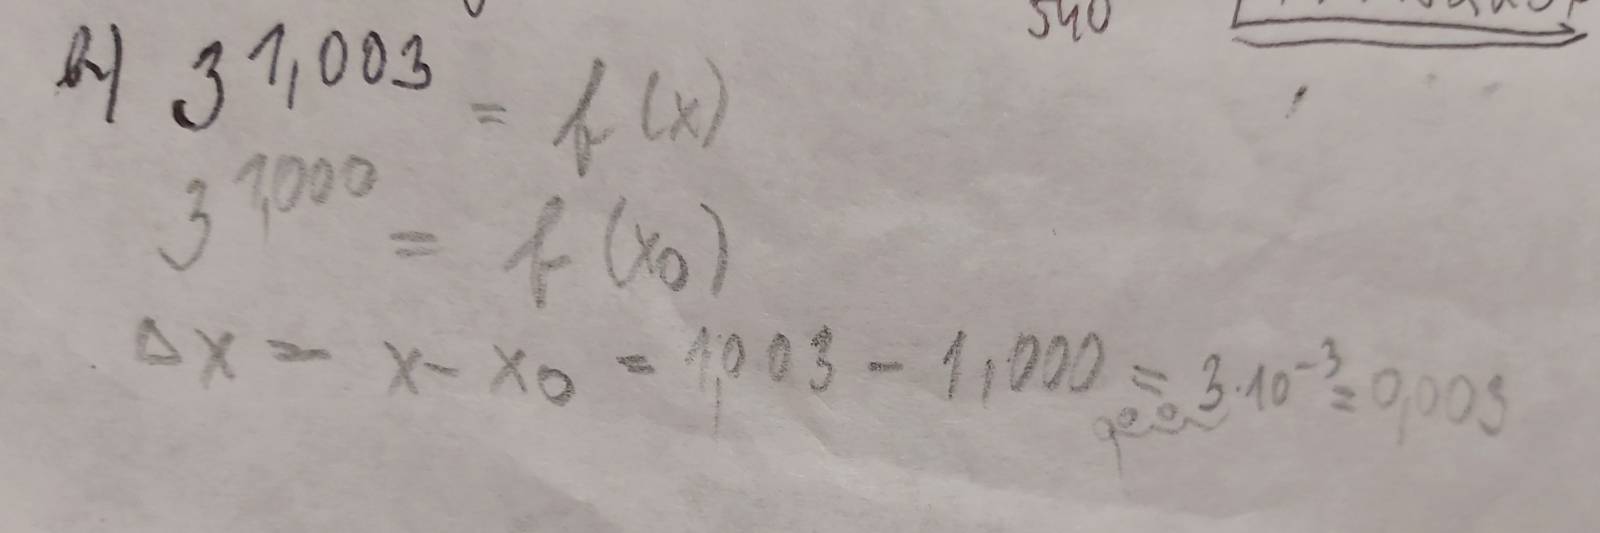 540
в) 3^1,003 = f(x)
3^1,000 = f(x₀)
Δx = x - x₀ = 1,003 - 1,000 = 3·10⁻³ = 0,003